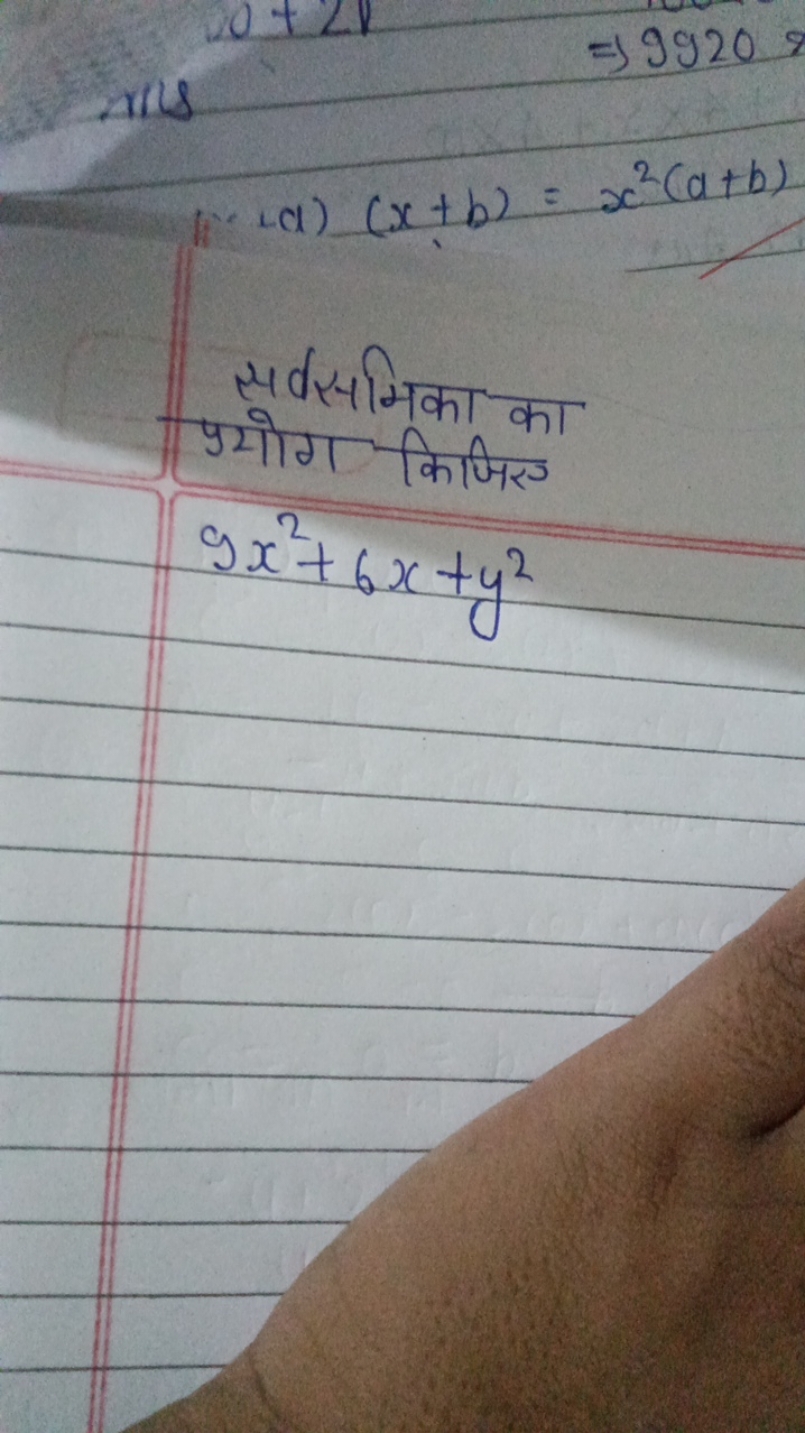 + 21
⇒ 9920
(x + b) = x²(a+b)
सर्वसमिका का
प्रयोग किजिए
9x² + 6x + y²